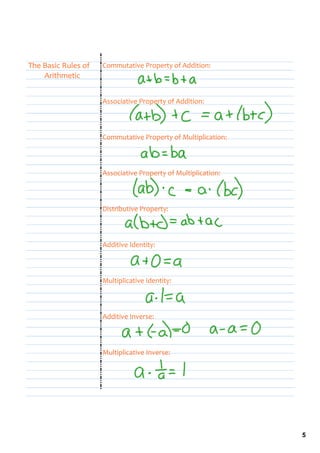 The Basic Rules of
Arithmetic
Commutative Property of Addition:
a+b=b+a
Associative Property of Addition:
(a+b)+c = a+(b+c)
Commutative Property of Multiplication:
ab=ba
Associative Property of Multiplication:
(ab)·c = a·(bc)
Distributive Property:
a(b+c)=ab+ac
Additive Identity:
a+0=a
Multiplicative Identity:
a·1=a
Additive Inverse:
a+(-a)=0 a-a=0
Multiplicative Inverse:
a·1/a=1
5